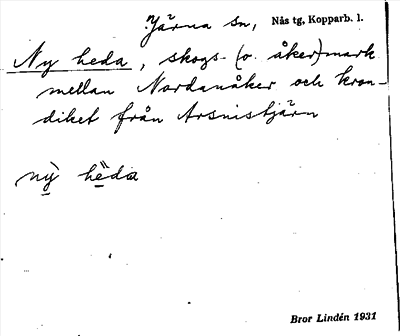 Järna sn, Nås tg, Kopparb. l.
Ny heda, skogs- (o. åker)mark
mellan Nordanåker och kron-
diket från Arsnistjärn
nỳ hèda
Bror Lindén 1931